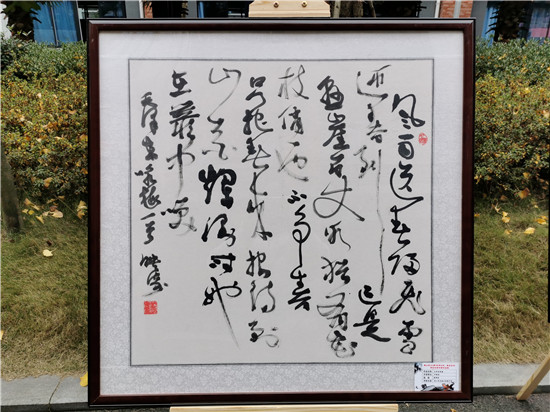 风雨送春归飞雪
迎春到已是
悬崖百丈冰犹有花
枝俏也不争春
只把春来报待到
山花烂漫时她
在丛中笑
毛泽东咏梅一首